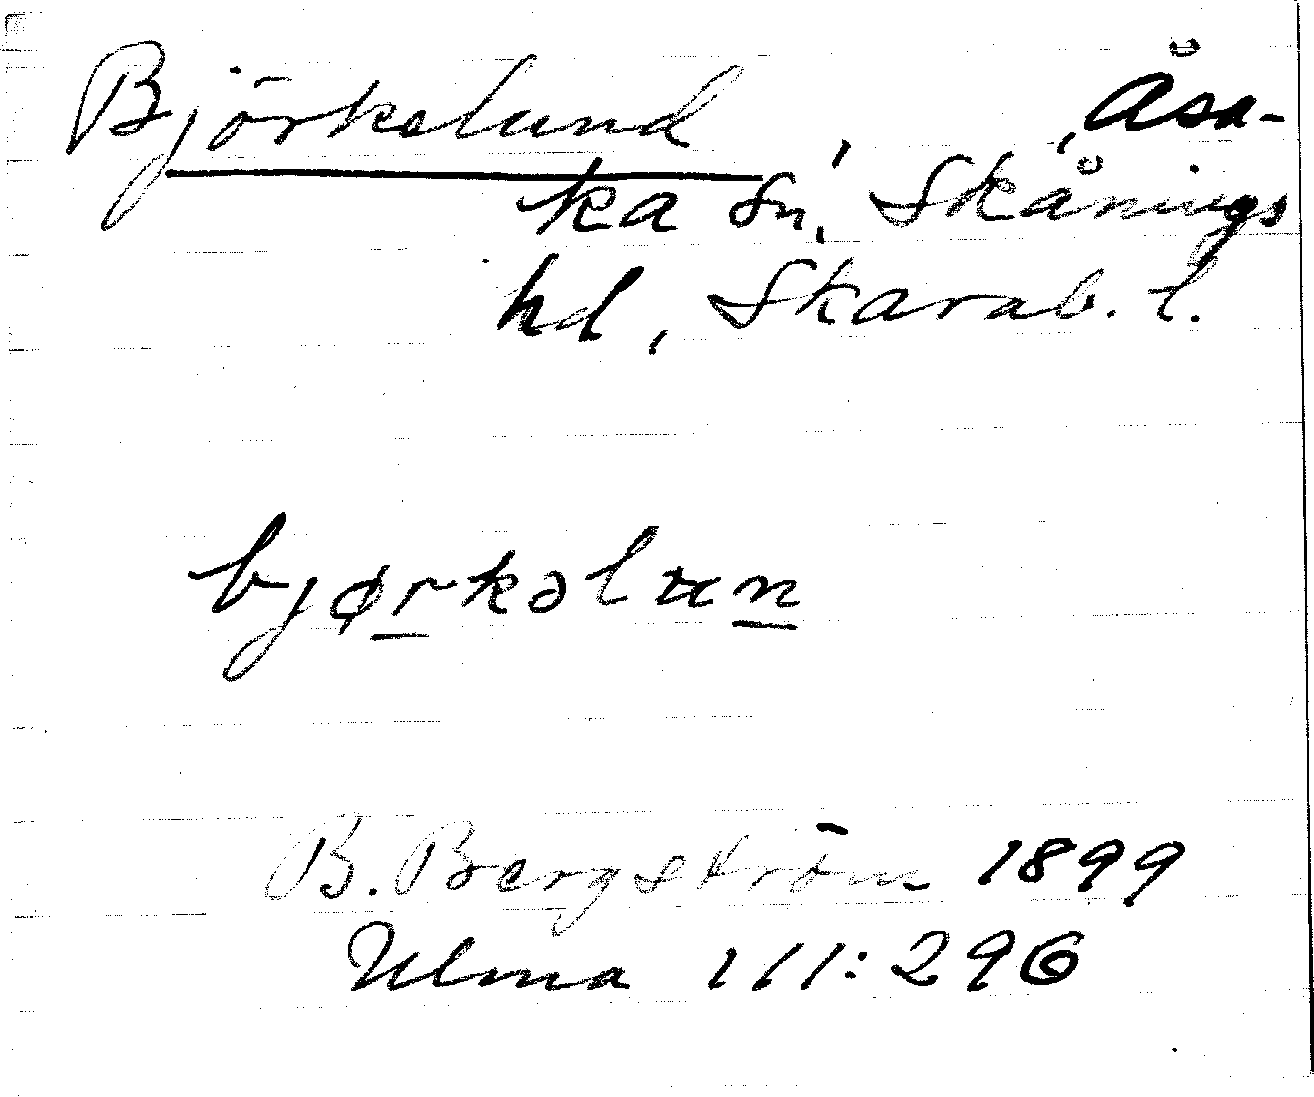 Björkelund, , Åsa-
ka sn, Skånings
hd, Skarab. l.
bjørkəlun
B. Bergström 1899
Ulma 111:296